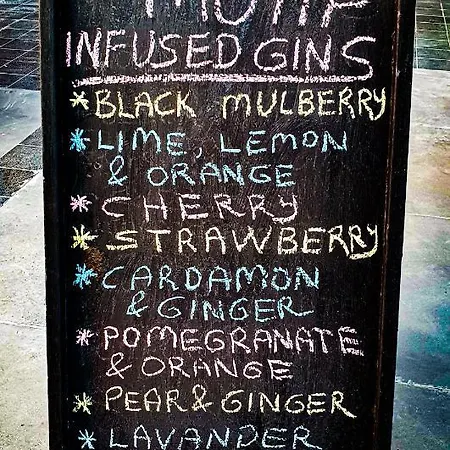 INFUSED GINS
* BLACK MULBERRY
* LIME, LEMON
& ORANGE
* CHERRY
* STRAWBERRY
* CARDAMON
& GINGER
* POMEGRANATE
& ORANGE
* PEAR & GINGER
* LAVANDER